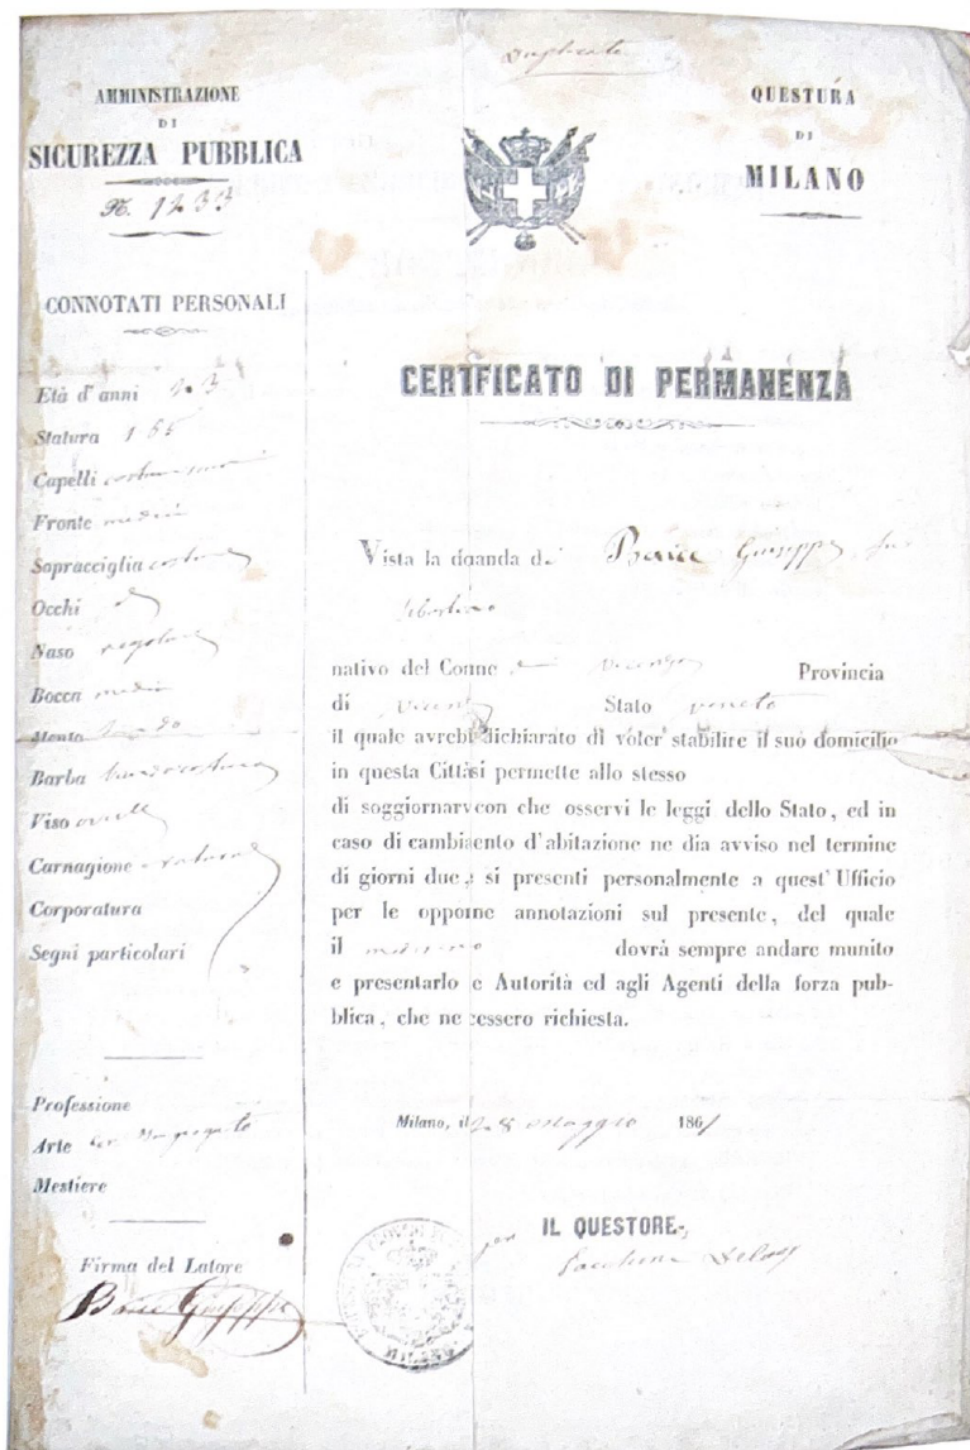 Duplicato
AMMINISTRAZIONE
DI
SICUREZZA PUBBLICA
N. 1233
QUESTURA
DI
MILANO
CONNOTATI PERSONALI
Età d'anni 23
Statura 165
Capelli
Fronte media
Sopracciglia
Occhi
Naso regolare
Bocca media
Mento
Barba
Viso ovale
Carnagione naturale
Corporatura
Segni particolari
Professione
Arte
Mestiere
Firma del Latore
Giuseppe
CERTFICATO DI PERMANENZA
Vista la doanda di Giuseppe fu
Sebastiano
nativo del Comne di Vicenza Provincia
di Vicenza Stato veneto
il quale avrebbe dichiarato di voler stabilire il suo domicilio
in questa Cittàsi permette allo stesso
di soggiornarvcon che osservi le leggi dello Stato, ed in
caso di cambiaento d'abitazione ne dia avviso nel termine
di giorni due, e si presenti personalmente a quest' Ufficio
per le oppoine annotazioni sul presente, del quale
il medesimo dovrà sempre andare munito
e presentarlo e Autorità ed agli Agenti della forza pub-
blica, che ne essero richiesta.
Milano, il 28 Maggio 1861
IL QUESTORE
per
MILANO